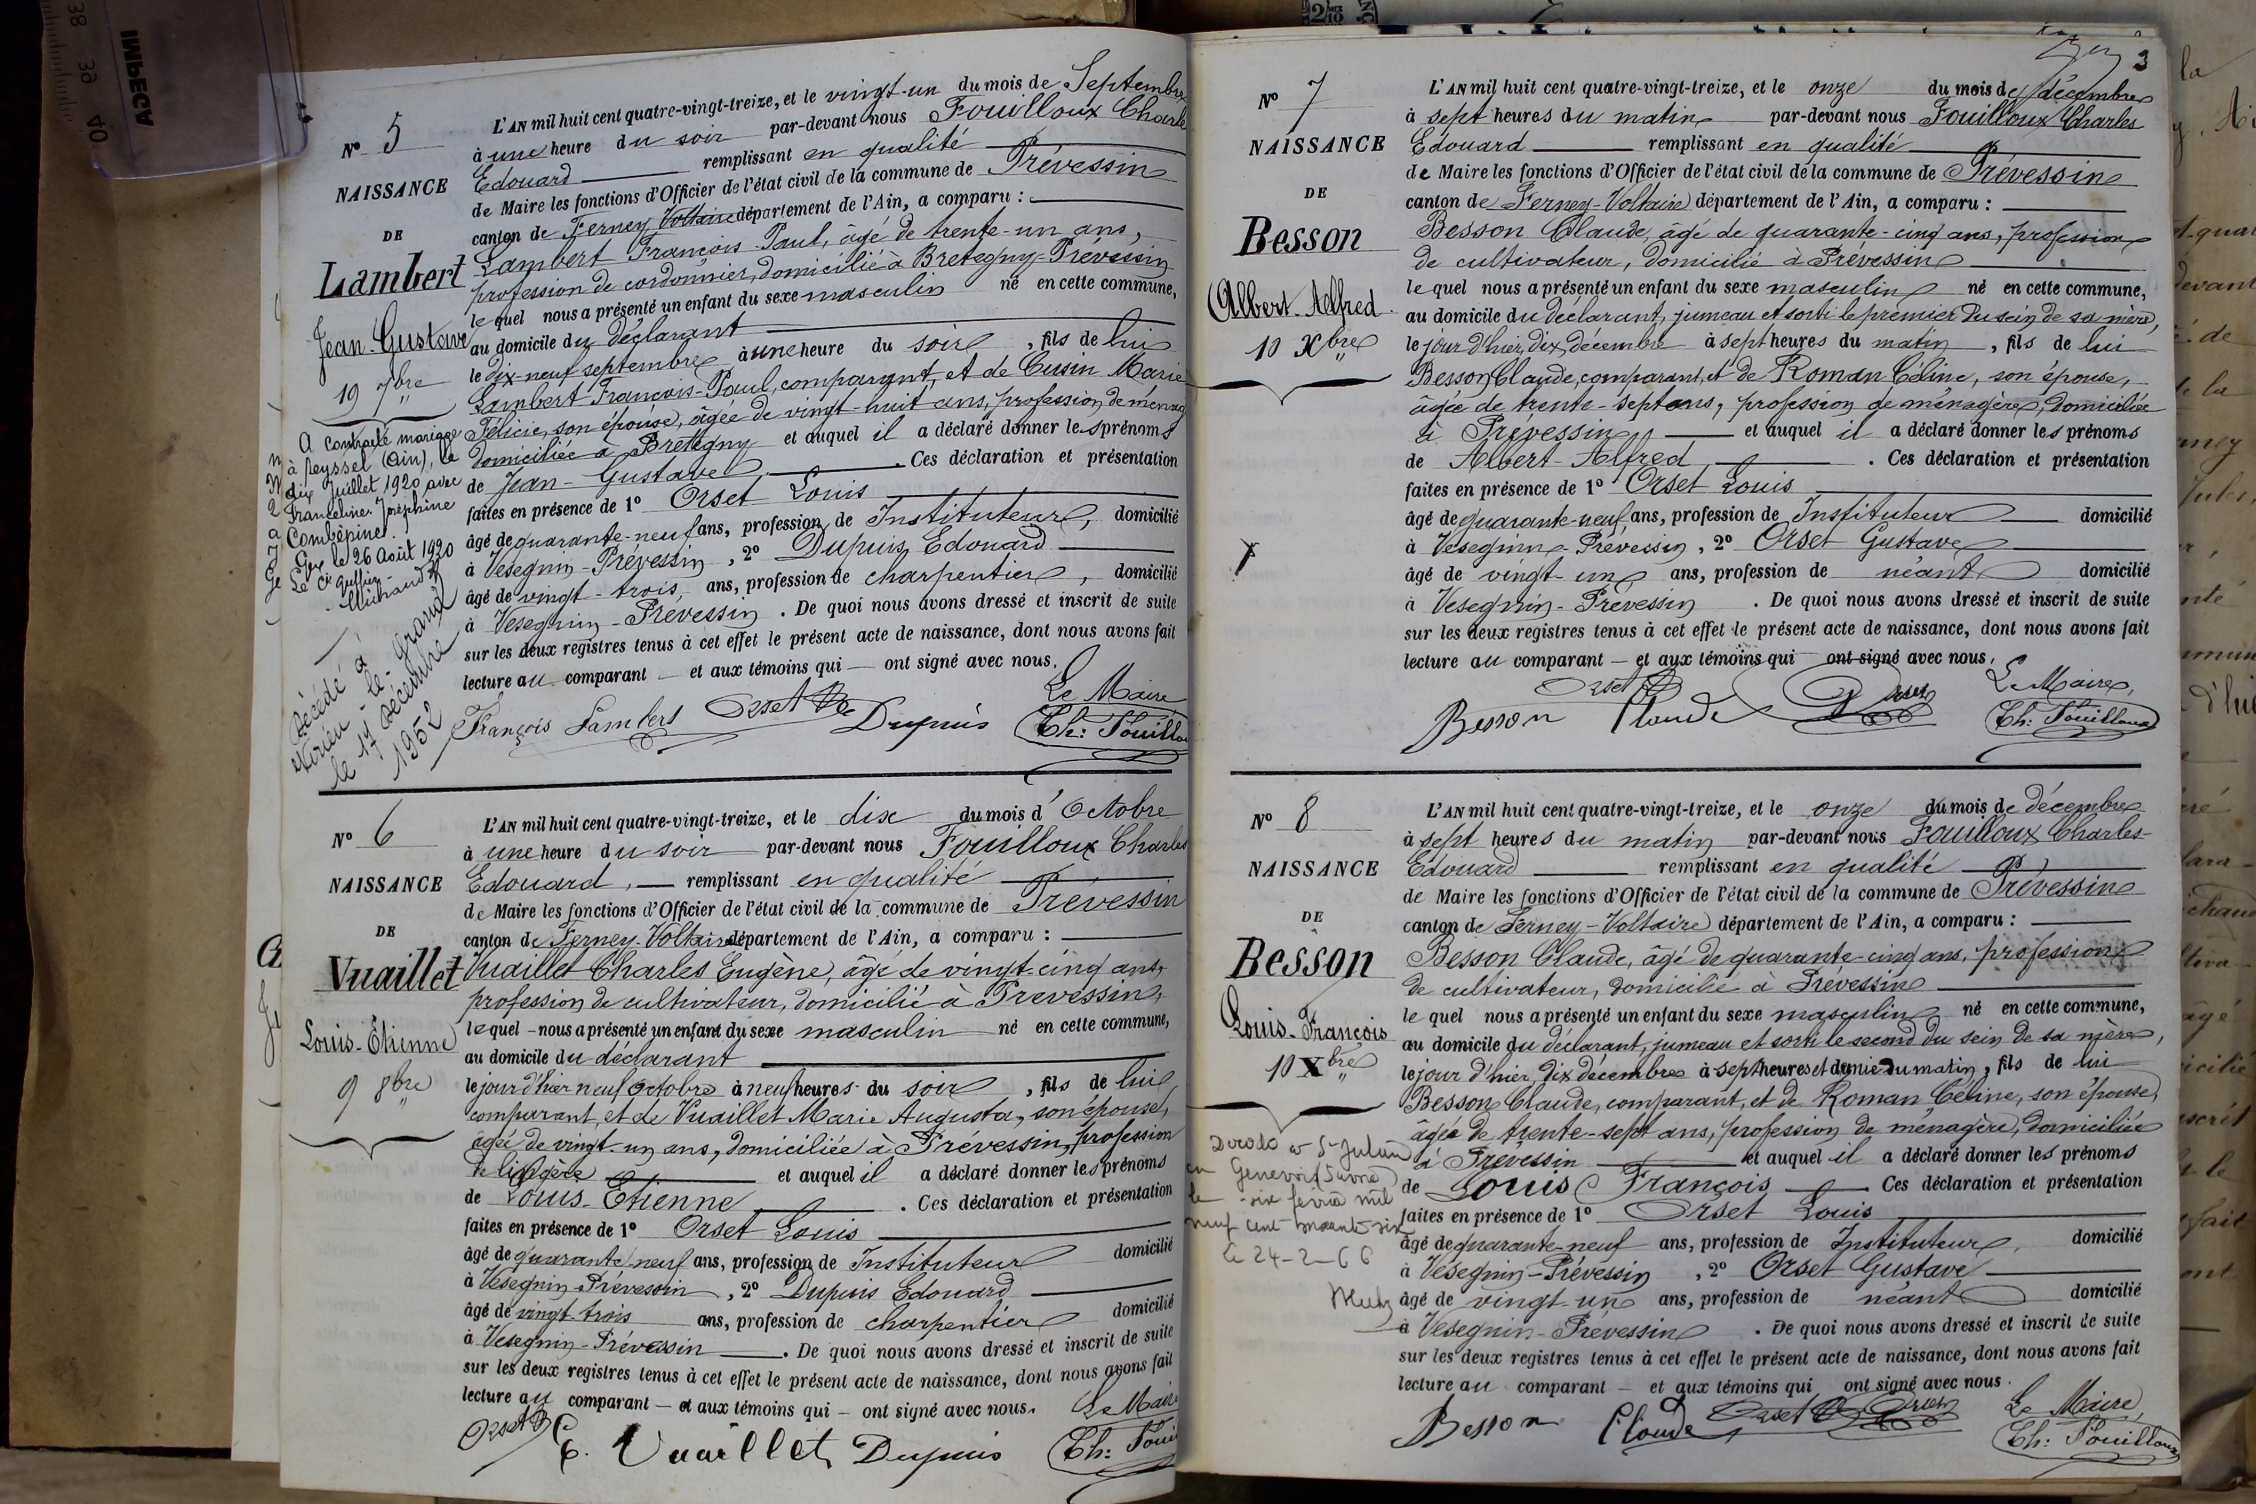 N° 5
NAISSANCE
DE
Lambert
Jean-Gustave
19 7bre
A contracté mariage
à Peyssel (Ain), le
dix Juillet 1920 avec
Franceline Joséphine
Combépine.
Gex le 26 Août 1920
Le Cis greffier
Michaud
Décédé à
le-Grand
le 17 décembre
1952
L'AN mil huit cent quatre-vingt-treize, et le vingt-un du mois de Septembre
à une heure du soir par-devant nous Fouilloux Charles
Edouard remplissant en qualité
de Maire les fonctions d'Officier de l'état civil de la commune de Prévessin
canton de Ferney-Voltaire département de l'Ain, a comparu :
Lambert François-Paul, âgé de trente-un ans,
profession de cordonnier, domicilié à Bretegny-Prévessin
lequel nous a présenté un enfant du sexe masculin né en cette commune,
au domicile du déclarant
le dix-neuf septembre à une heure du soir, fils de lui
Lambert François-Paul, comparant, et de Cusin Marie
Félicie, son épouse, âgée de vingt-huit ans, profession de ménag
domiciliée à Bretegny et auquel il a déclaré donner les prénoms
de Jean-Gustave. Ces déclaration et présentation
faites en présence de 1° Orset Louis
âgé de quarante-neuf ans, profession de Instituteur, domicilié
à Vesegnin-Prévessin, 2° Dupuis Edouard
âgé de vingt-trois ans, profession de charpentier, domicilié
à Vesegnin-Prévessin. De quoi nous avons dressé et inscrit de suite
sur les deux registres tenus à cet effet le présent acte de naissance, dont nous avons fait
lecture au comparant — et aux témoins qui — ont signé avec nous.
Le Maire
François Lambert Orset Dupuis Th: Fouilloux
N° 6
NAISSANCE
DE
Vuaillet
Louis-Etienne
9 8bre
L'AN mil huit cent quatre-vingt-treize, et le dix du mois d'Octobre
à une heure du soir par-devant nous Fouilloux Charles
Edouard, — remplissant en qualité
de Maire les fonctions d'Officier de l'état civil de la commune de Prévessin
canton de Ferney-Voltaire département de l'Ain, a comparu :
Vuaillet Charles Eugène, âgé de vingt-cinq ans,
profession de cultivateur, domicilié à Prevessin,
lequel – nous a présenté un enfant du sexe masculin né en cette commune,
au domicile du déclarant
le jour d'hier neuf octobre à neuf heures du soir, fils de lui
comparant, et de Vuaillet Marie Augusta, son épouse,
âgée de vingt-un ans, domiciliée à Prévessin, profession
de lingère et auquel il a déclaré donner les prénoms
de Louis-Etienne. Ces déclaration et présentation
faites en présence de 1° Orset Louis
âgé de quarante-neuf ans, profession de Instituteur domicilié
à Vésegnin-Prévessin, 2° Dupuis Edouard
âgé de vingt-trois ans, profession de charpentier domicilié
à Vesegnin-Prévessin. De quoi nous avons dressé et inscrit de suite
sur les deux registres tenus à cet effet le présent acte de naissance, dont nous avons fait
lecture au comparant — et aux témoins qui — ont signé avec nous.
Le Maire
Orset E. Vuaillet Dupuis Th: Foui
3
N° 7
NAISSANCE
DE
Besson
Albert-Alfred
10 Xbre
L'AN mil huit cent quatre-vingt-treize, et le onze du mois de décembre
à sept heures du matin par-devant nous Fouilloux Charles
Edouard remplissant en qualité
de Maire les fonctions d'Officier de l'état civil de la commune de Prévessin
canton de Ferney-Voltaire département de l'Ain, a comparu :
Besson Claude, âgé de quarante-cinq ans, profession
de cultivateur, domicilié à Prévessin
lequel nous a présenté un enfant du sexe masculin né en cette commune,
au domicile du déclarant, jumeau et sorti le premier du sein de sa mère,
le jour d'hier, dix décembre à sept heures du matin, fils de lui
Besson Claude, comparant, et de Roman Céline, son épouse,
âgée de trente-sept ans, profession de ménagère, domiciliée
à Prévessin et auquel il a déclaré donner les prénoms
de Albert-Alfred. Ces déclaration et présentation
faites en présence de 1° Orset Louis
âgé de quarante-neuf ans, profession de Instituteur domicilié
à Vesegnin-Prévessin, 2° Orset Gustave
âgé de vingt-un ans, profession de néant domicilié
à Vesegnin-Prévessin. De quoi nous avons dressé et inscrit de suite
sur les deux registres tenus à cet effet le présent acte de naissance, dont nous avons fait
lecture au comparant — et aux témoins qui ont signé avec nous,
Orset Orset Le Maire,
Besson Claude Th: Fouilloux
N° 8
NAISSANCE
DE
Besson
Louis-François
10 Xbre
Décédé à St Julien
en Genevois
le six février mil
neuf cent soixante six
le 24-2-66
L'AN mil huit cent quatre-vingt-treize, et le onze du mois de décembre
à sept heures du matin par-devant nous Fouilloux Charles-
Edouard remplissant en qualité
de Maire les fonctions d'Officier de l'état civil de la commune de Prévessin
canton de Ferney-Voltaire département de l'Ain, a comparu :
Besson Claude, âgé de quarante-cinq ans, profession
de cultivateur, domicilié à Prévessin
lequel nous a présenté un enfant du sexe masculin né en cette commune,
au domicile du déclarant, jumeau et sorti le second du sein de sa mère,
le jour d'hier, dix décembre à sept heures et demie du matin, fils de lui
Besson Claude, comparant, et de Roman Céline, son épouse,
âgée de trente-sept ans, profession de ménagère, domiciliée
à Prévessin et auquel il a déclaré donner les prénoms
de Louis François Ces déclaration et présentation
faites en présence de 1° Orset Louis
âgé de quarante-neuf ans, profession de Instituteur, domicilié
à Vesegnin-Prévessin, 2° Orset Gustave
âgé de vingt-un ans, profession de néant domicilié
à Vesegnin-Prévessin. De quoi nous avons dressé et inscrit de suite
sur les deux registres tenus à cet effet le présent acte de naissance, dont nous avons fait
lecture au comparant — et aux témoins qui ont signé avec nous.
Le Maire,
Besson Claude Orset Orset Th: Fouilloux